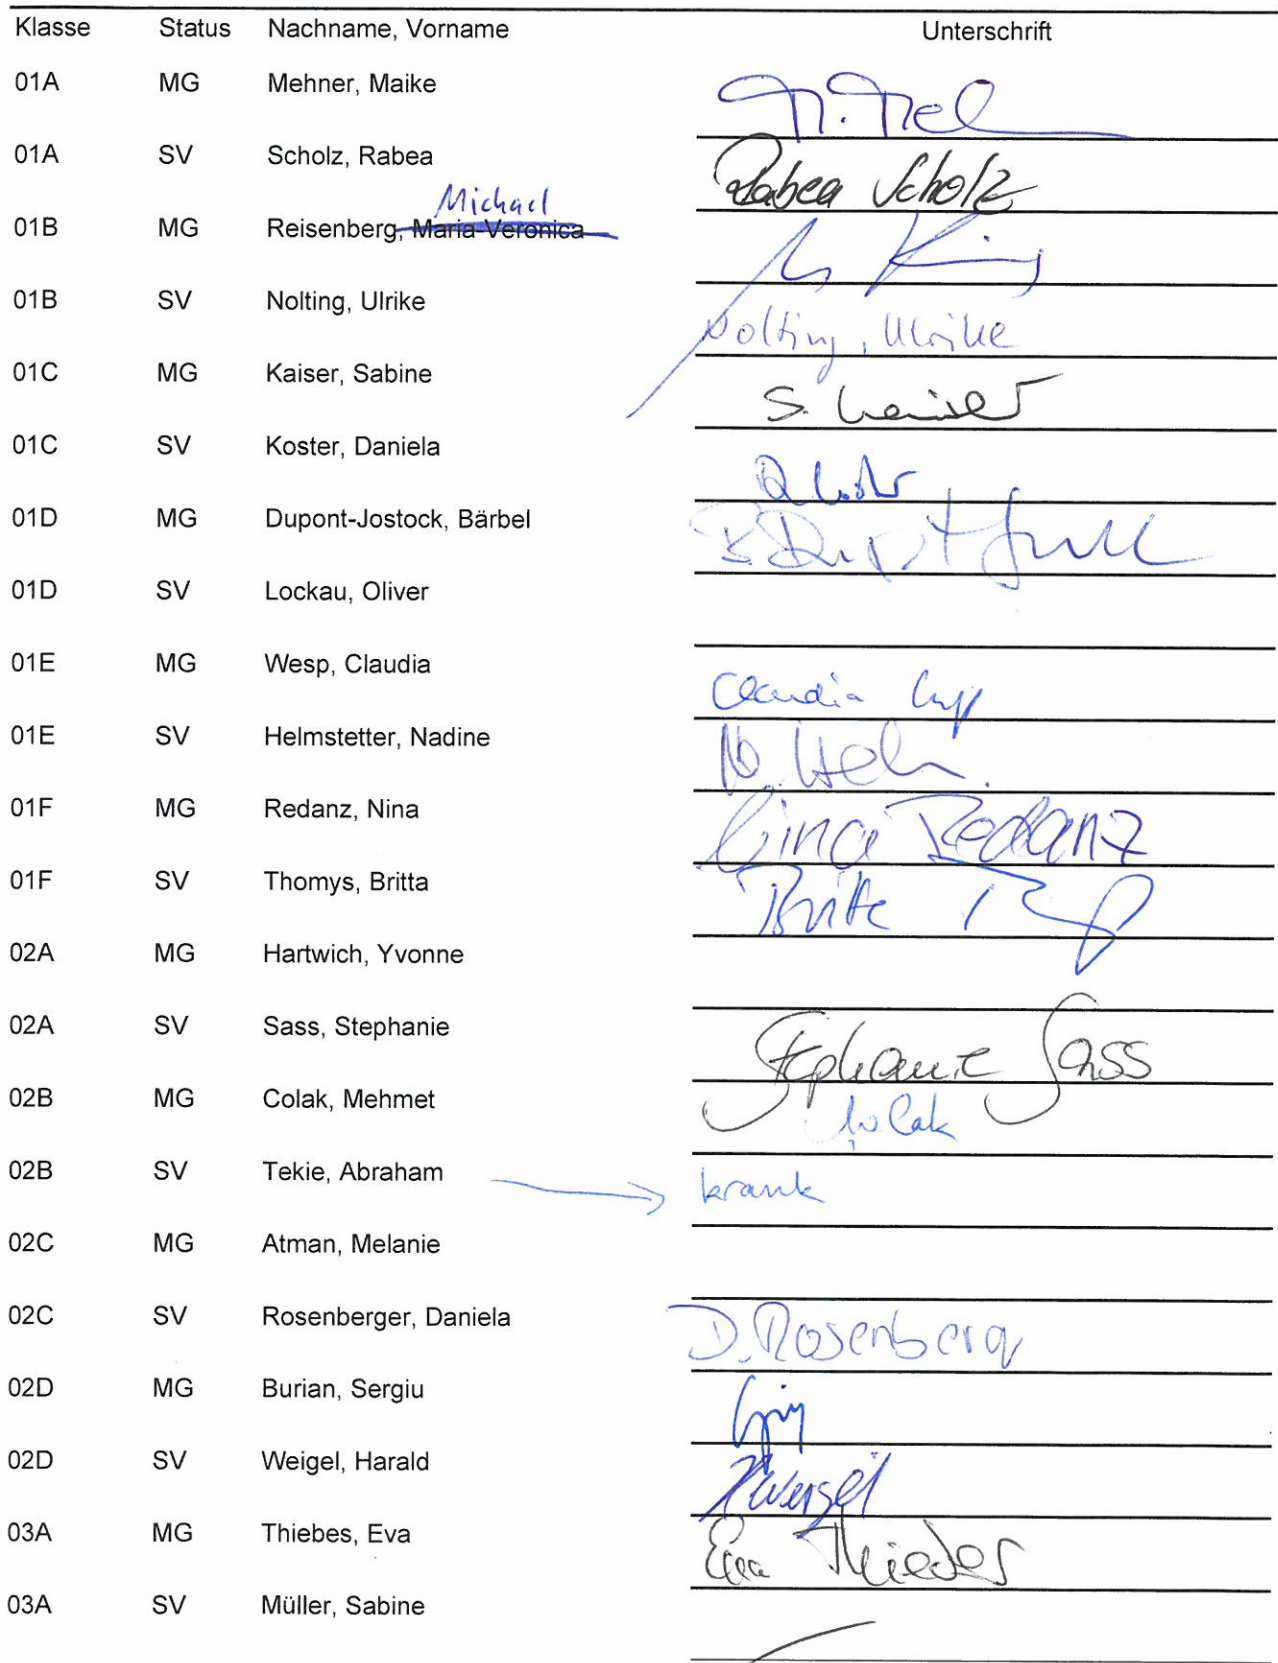 Klasse Status Nachname, Vorname Unterschrift
01A MG Mehner, Maike
01A SV Scholz, Rabea Rabea Scholz
Michael
01B MG Reisenberg, Maria-Veronica
01B SV Nolting, Ulrike Nolting, Ulrike
01C MG Kaiser, Sabine S. Kaiser
01C SV Koster, Daniela
01D MG Dupont-Jostock, Bärbel
01D SV Lockau, Oliver
01E MG Wesp, Claudia Claudia
01E SV Helmstetter, Nadine
01F MG Redanz, Nina Nina Redanz
01F SV Thomys, Britta
02A MG Hartwich, Yvonne
02A SV Sass, Stephanie Stephanie Sass
02B MG Colak, Mehmet
02B SV Tekie, Abraham krank
02C MG Atman, Melanie
02C SV Rosenberger, Daniela D. Rosenberg
02D MG Burian, Sergiu
02D SV Weigel, Harald
03A MG Thiebes, Eva Eva Thiebes
03A SV Müller, Sabine